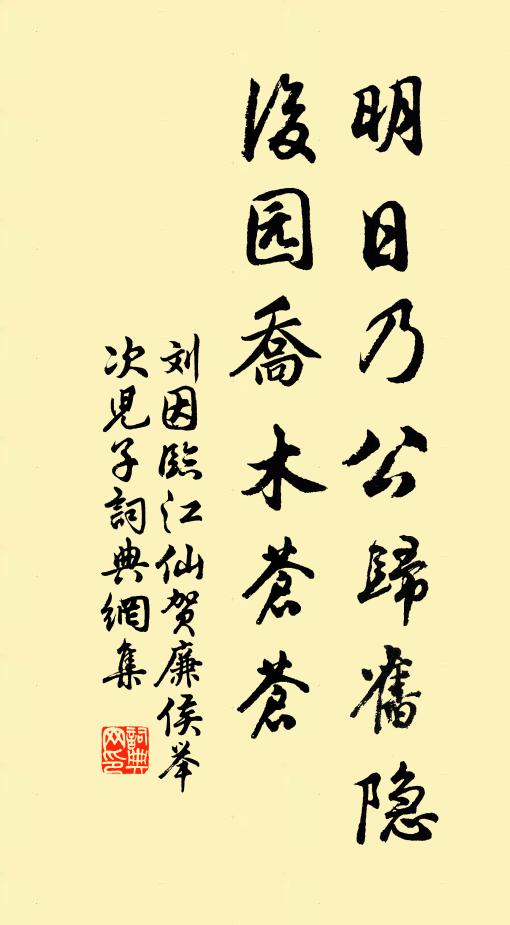 明日乃公歸舊隐
後园喬木蒼蒼
刘因臨江仙贺廉侯举
次児子詞典網集
詞典网印